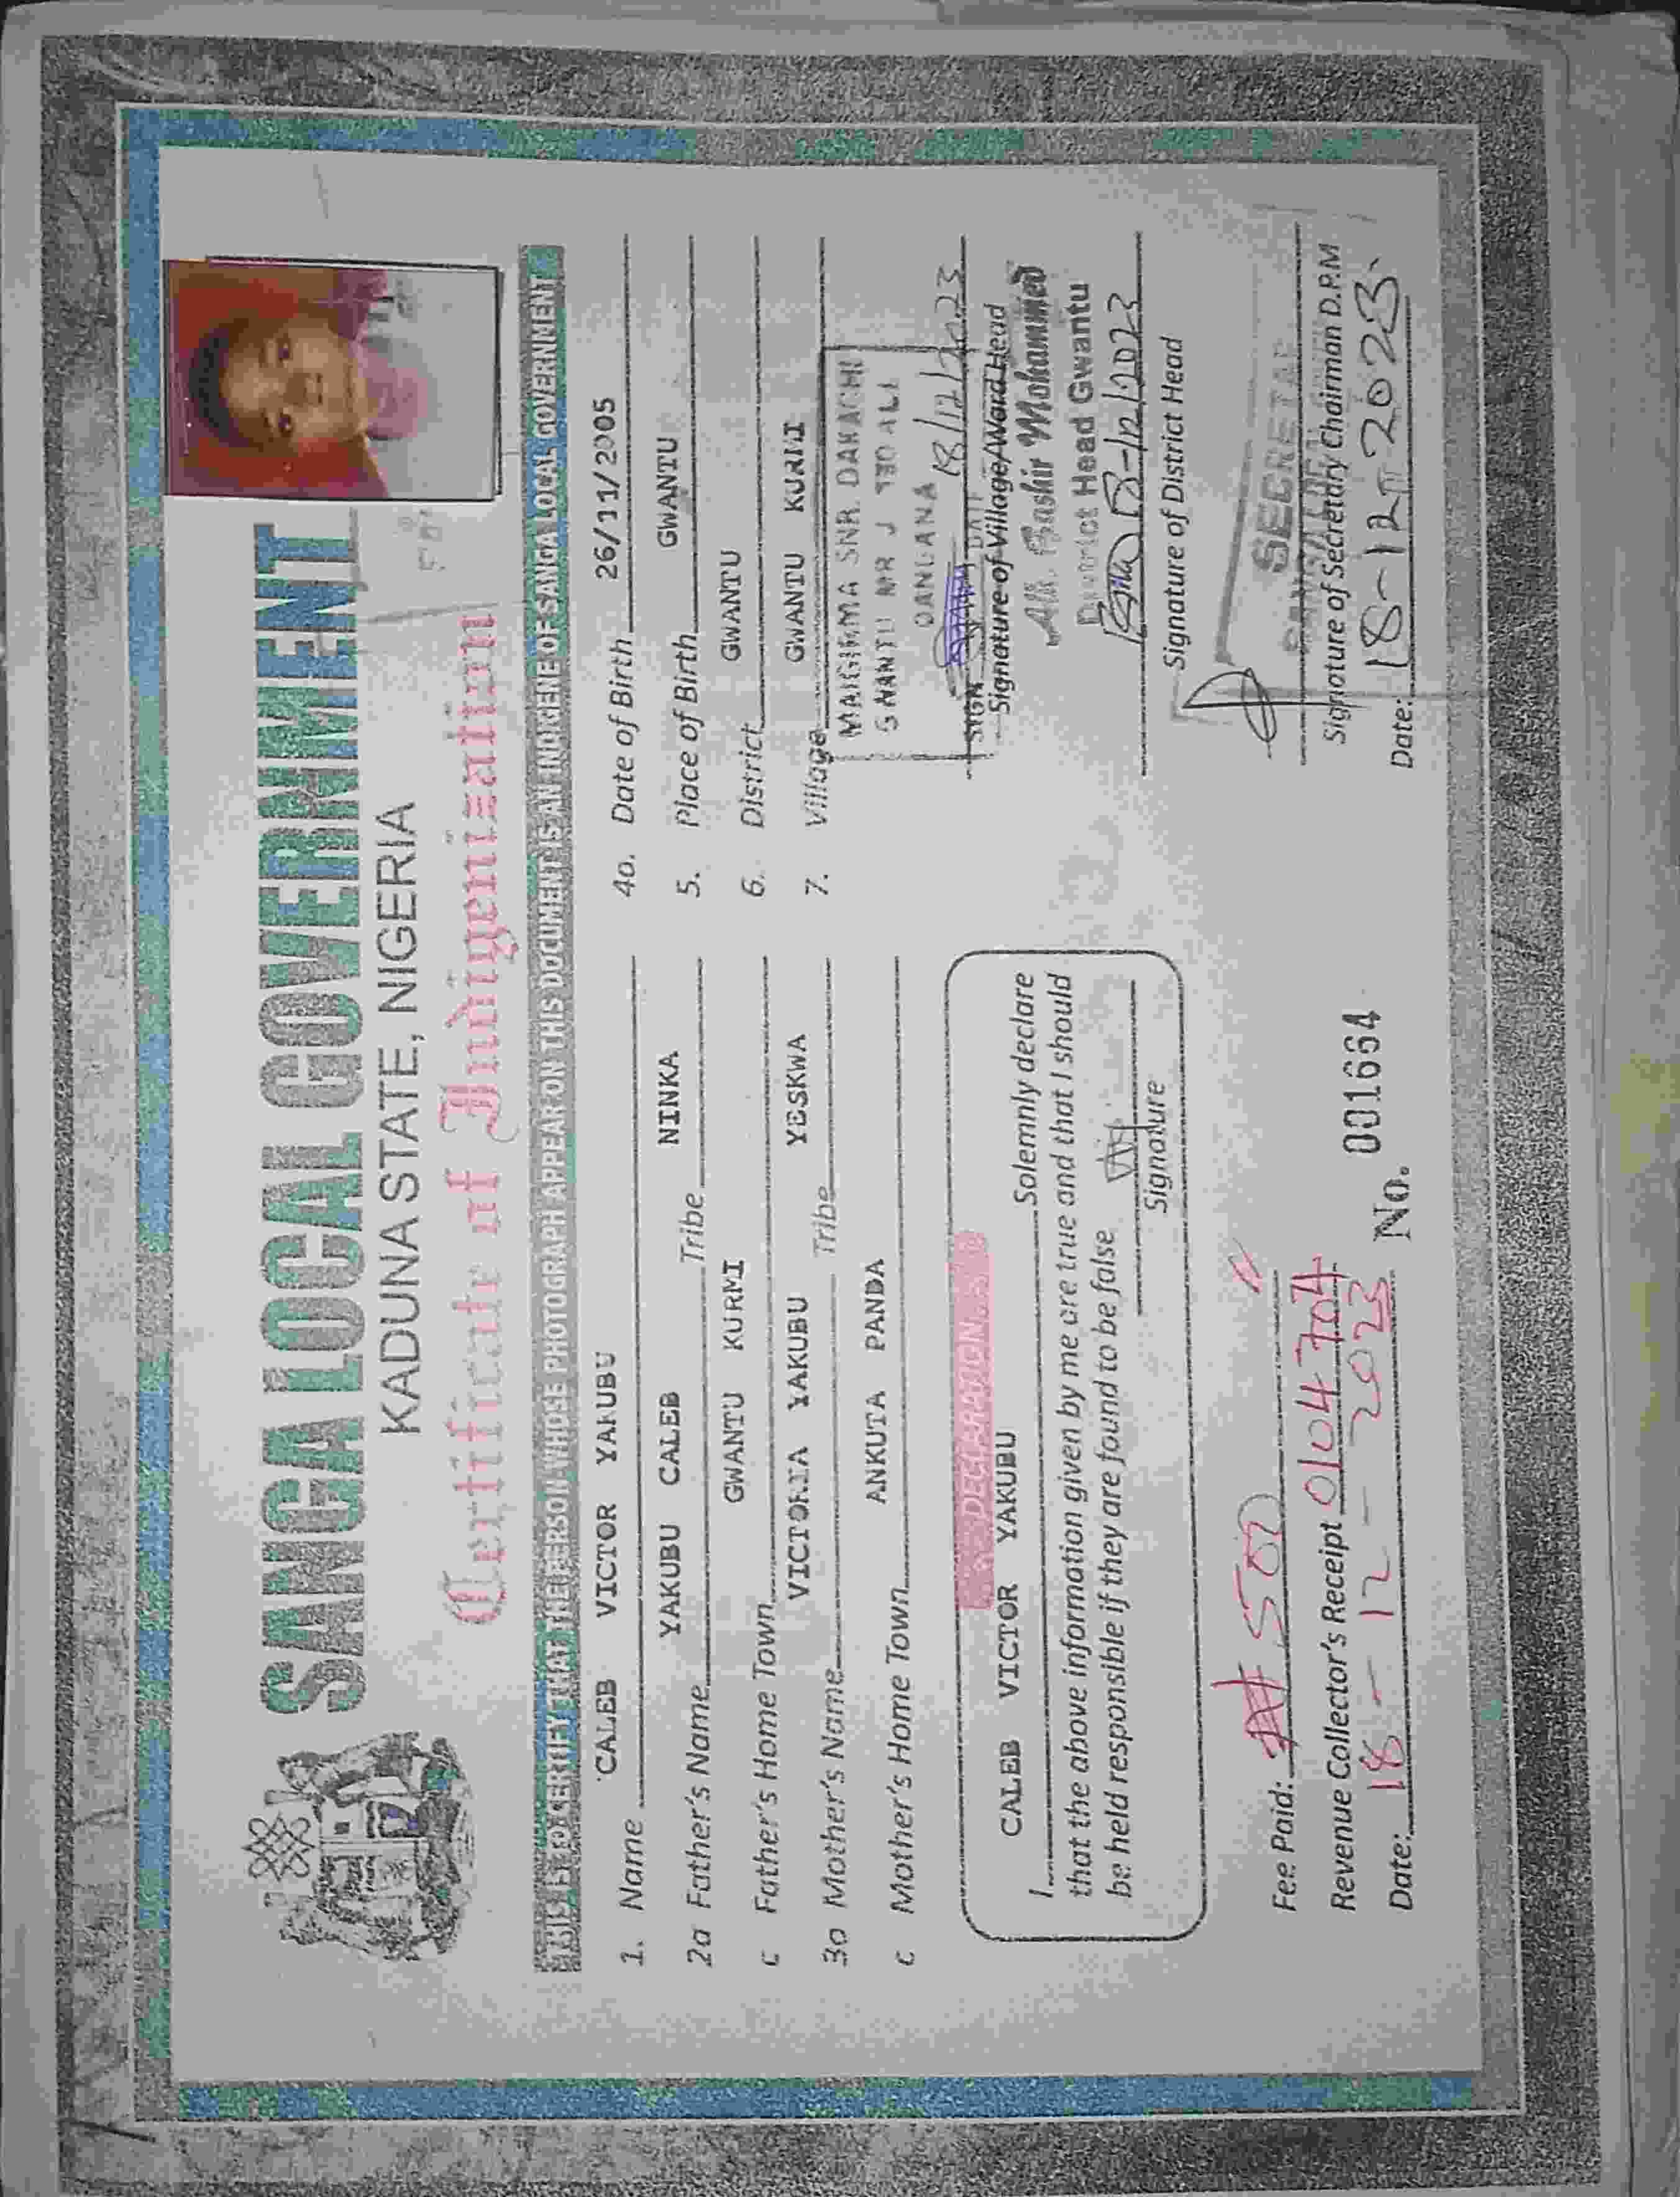 SANGA LOCAL GOVERNMENT
KADUNA STATE, NIGERIA
Certificate of Indigenization
THIS IS TO CERTIFY THAT THE PERSON WHOSE PHOTOGRAPH APPEAR ON THIS DOCUMENT IS AN INDIGENE OF SANGA LOCAL GOVERNMENT
1. Name CALEB VICTOR YAKUBU
2a Father's Name YAKUBU CALEB Tribe NINKA
c Father's Home Town GWANTU KURMI
3a Mother's Name VICTORIA YAKUBU Tribe YESKWA
c Mother's Home Town ANKUTA PANDA
DECLARATION
I CALEB VICTOR YAKUBU Solemnly declare
that the above information given by me are true and that I should
be held responsible if they are found to be false
Signature
Fee Paid: ₦ 500
Revenue Collector's Receipt 0104704
Date: 18 - 12 - 2023
No. 001664
4a. Date of Birth 26/11/2005
5. Place of Birth GWANTU
6. District GWANTU
7. Village GWANTU KURMI
MAIGIMMA SNR. DAKACHI
GWANTU MR J
18/12/2023
SIGN DATE
Signature of Village/Ward Head
Alh. Bashir Mohammed
District Head Gwantu
18-12/2023
Signature of District Head
SECRETARY
Signature of Secretary Chairman D.P.M
Date: 18-12-2023